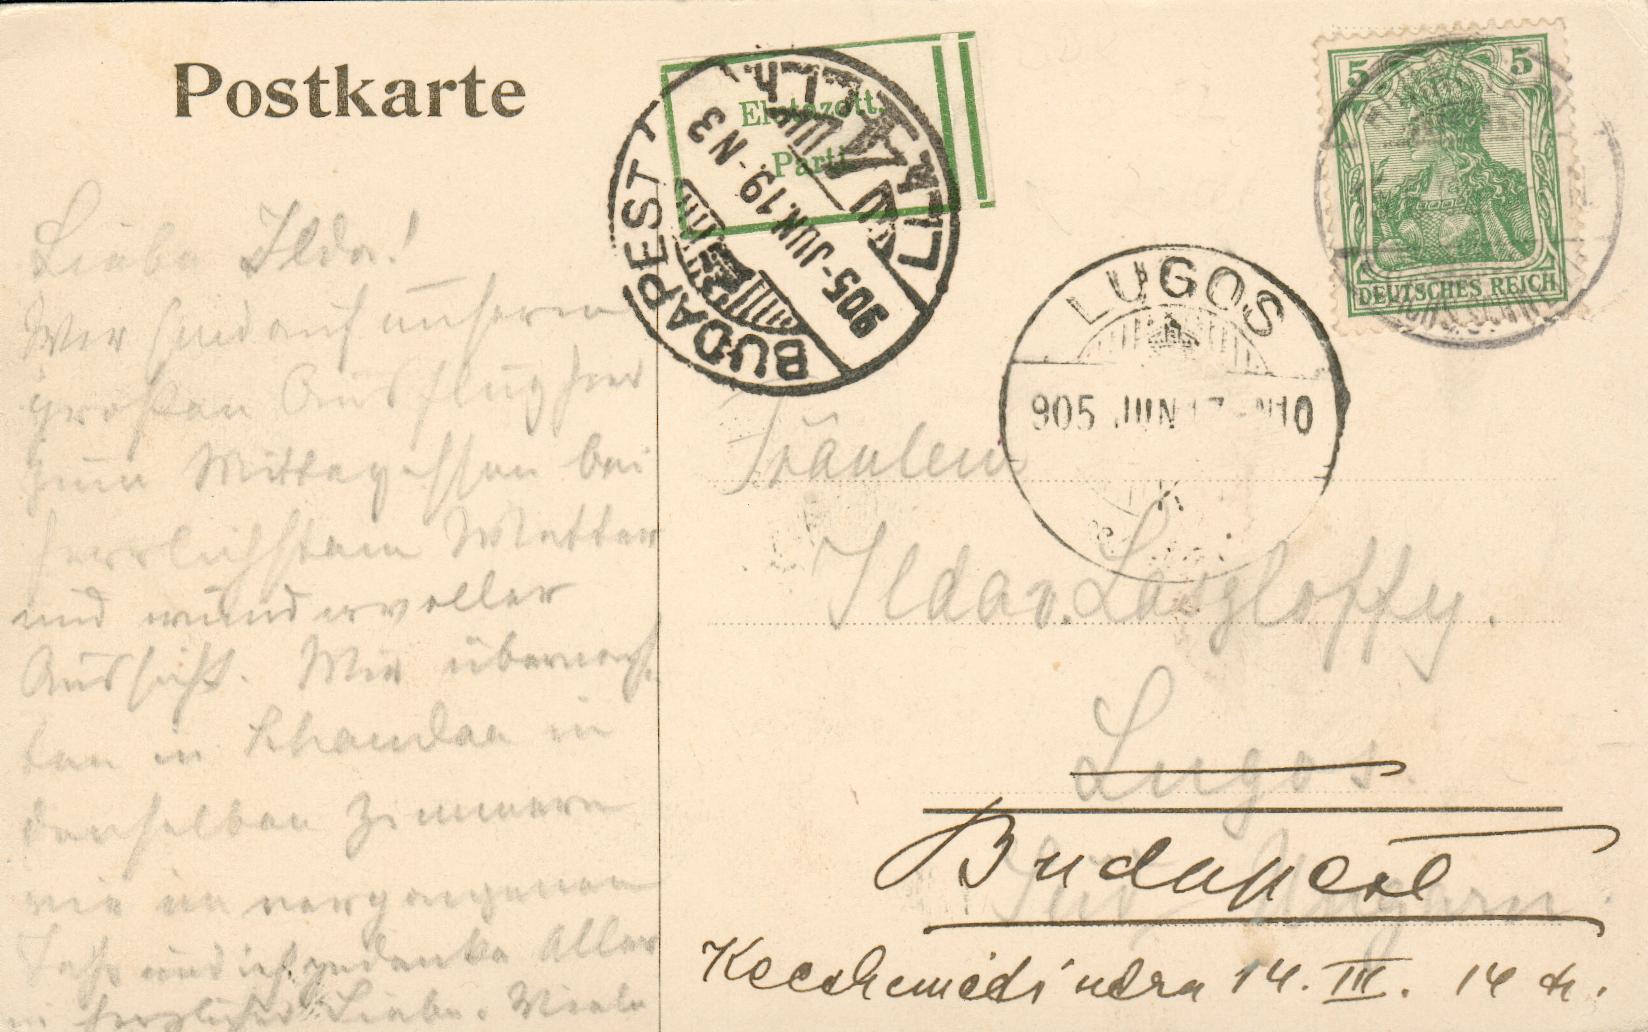 Postkarte
Elutazott.
Parti
BUDAPEST
905 JUN. 19. N3
5 5
DEUTSCHES REICH
LUGOS
905 JUN 17 N10
Liebe Ilda!
Wir sind auf unserem
großen Ausflug hier
zum Mittagessen bei
herrlichstem Wetter
und wundervoller
Aussicht. Wir übernach-
ten in Schandau in
denselben Zimmern
wie im vergangenen
Jahr und ich gedenke Aller
in herzlicher Liebe. Viele
Fräulein
Ilda v. Laszloffy.
Lugos.
Süd-Ungarn.
Budapest
Kecskeméti utcza 14. III. 14 a.